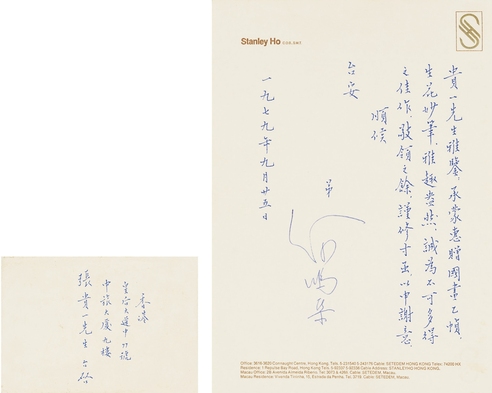 Stanley Ho
貴一先生雅鑒，承蒙惠贈國畫乙幀，
生花妙筆，雅趣盎然，誠為不可多得
之佳作，敬領之餘，謹修寸函，以申謝意
順候
台安
弟
何鴻燊
一九七九年九月廿五日
Office: Connaught Centre, Hong Kong. Tels. Cable: SETEDEM HONG KONG Telex:
Residence: 1 Repulse Bay Road, Hong Kong. Tels. Cable Address: STANLEYHO HONG KONG.
Macau Office: Avenida Almeida Ribeiro, Tel: Cable: SETEDEM, Macau.
Macau Residence Estrada da Penha, Tels. Cable: SETEDEM, Macau.
香港
皇后大道中77號
中旅大廈九樓
張貴一先生 台啓